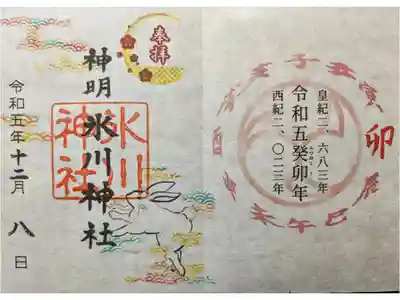 子丑寅卯辰巳午未申酉戌亥
皇紀二、六八三年
令和五癸卯年
西紀二、〇二三年
奉拝
神明氷川神社
氷川神社
令和五年十二月八日